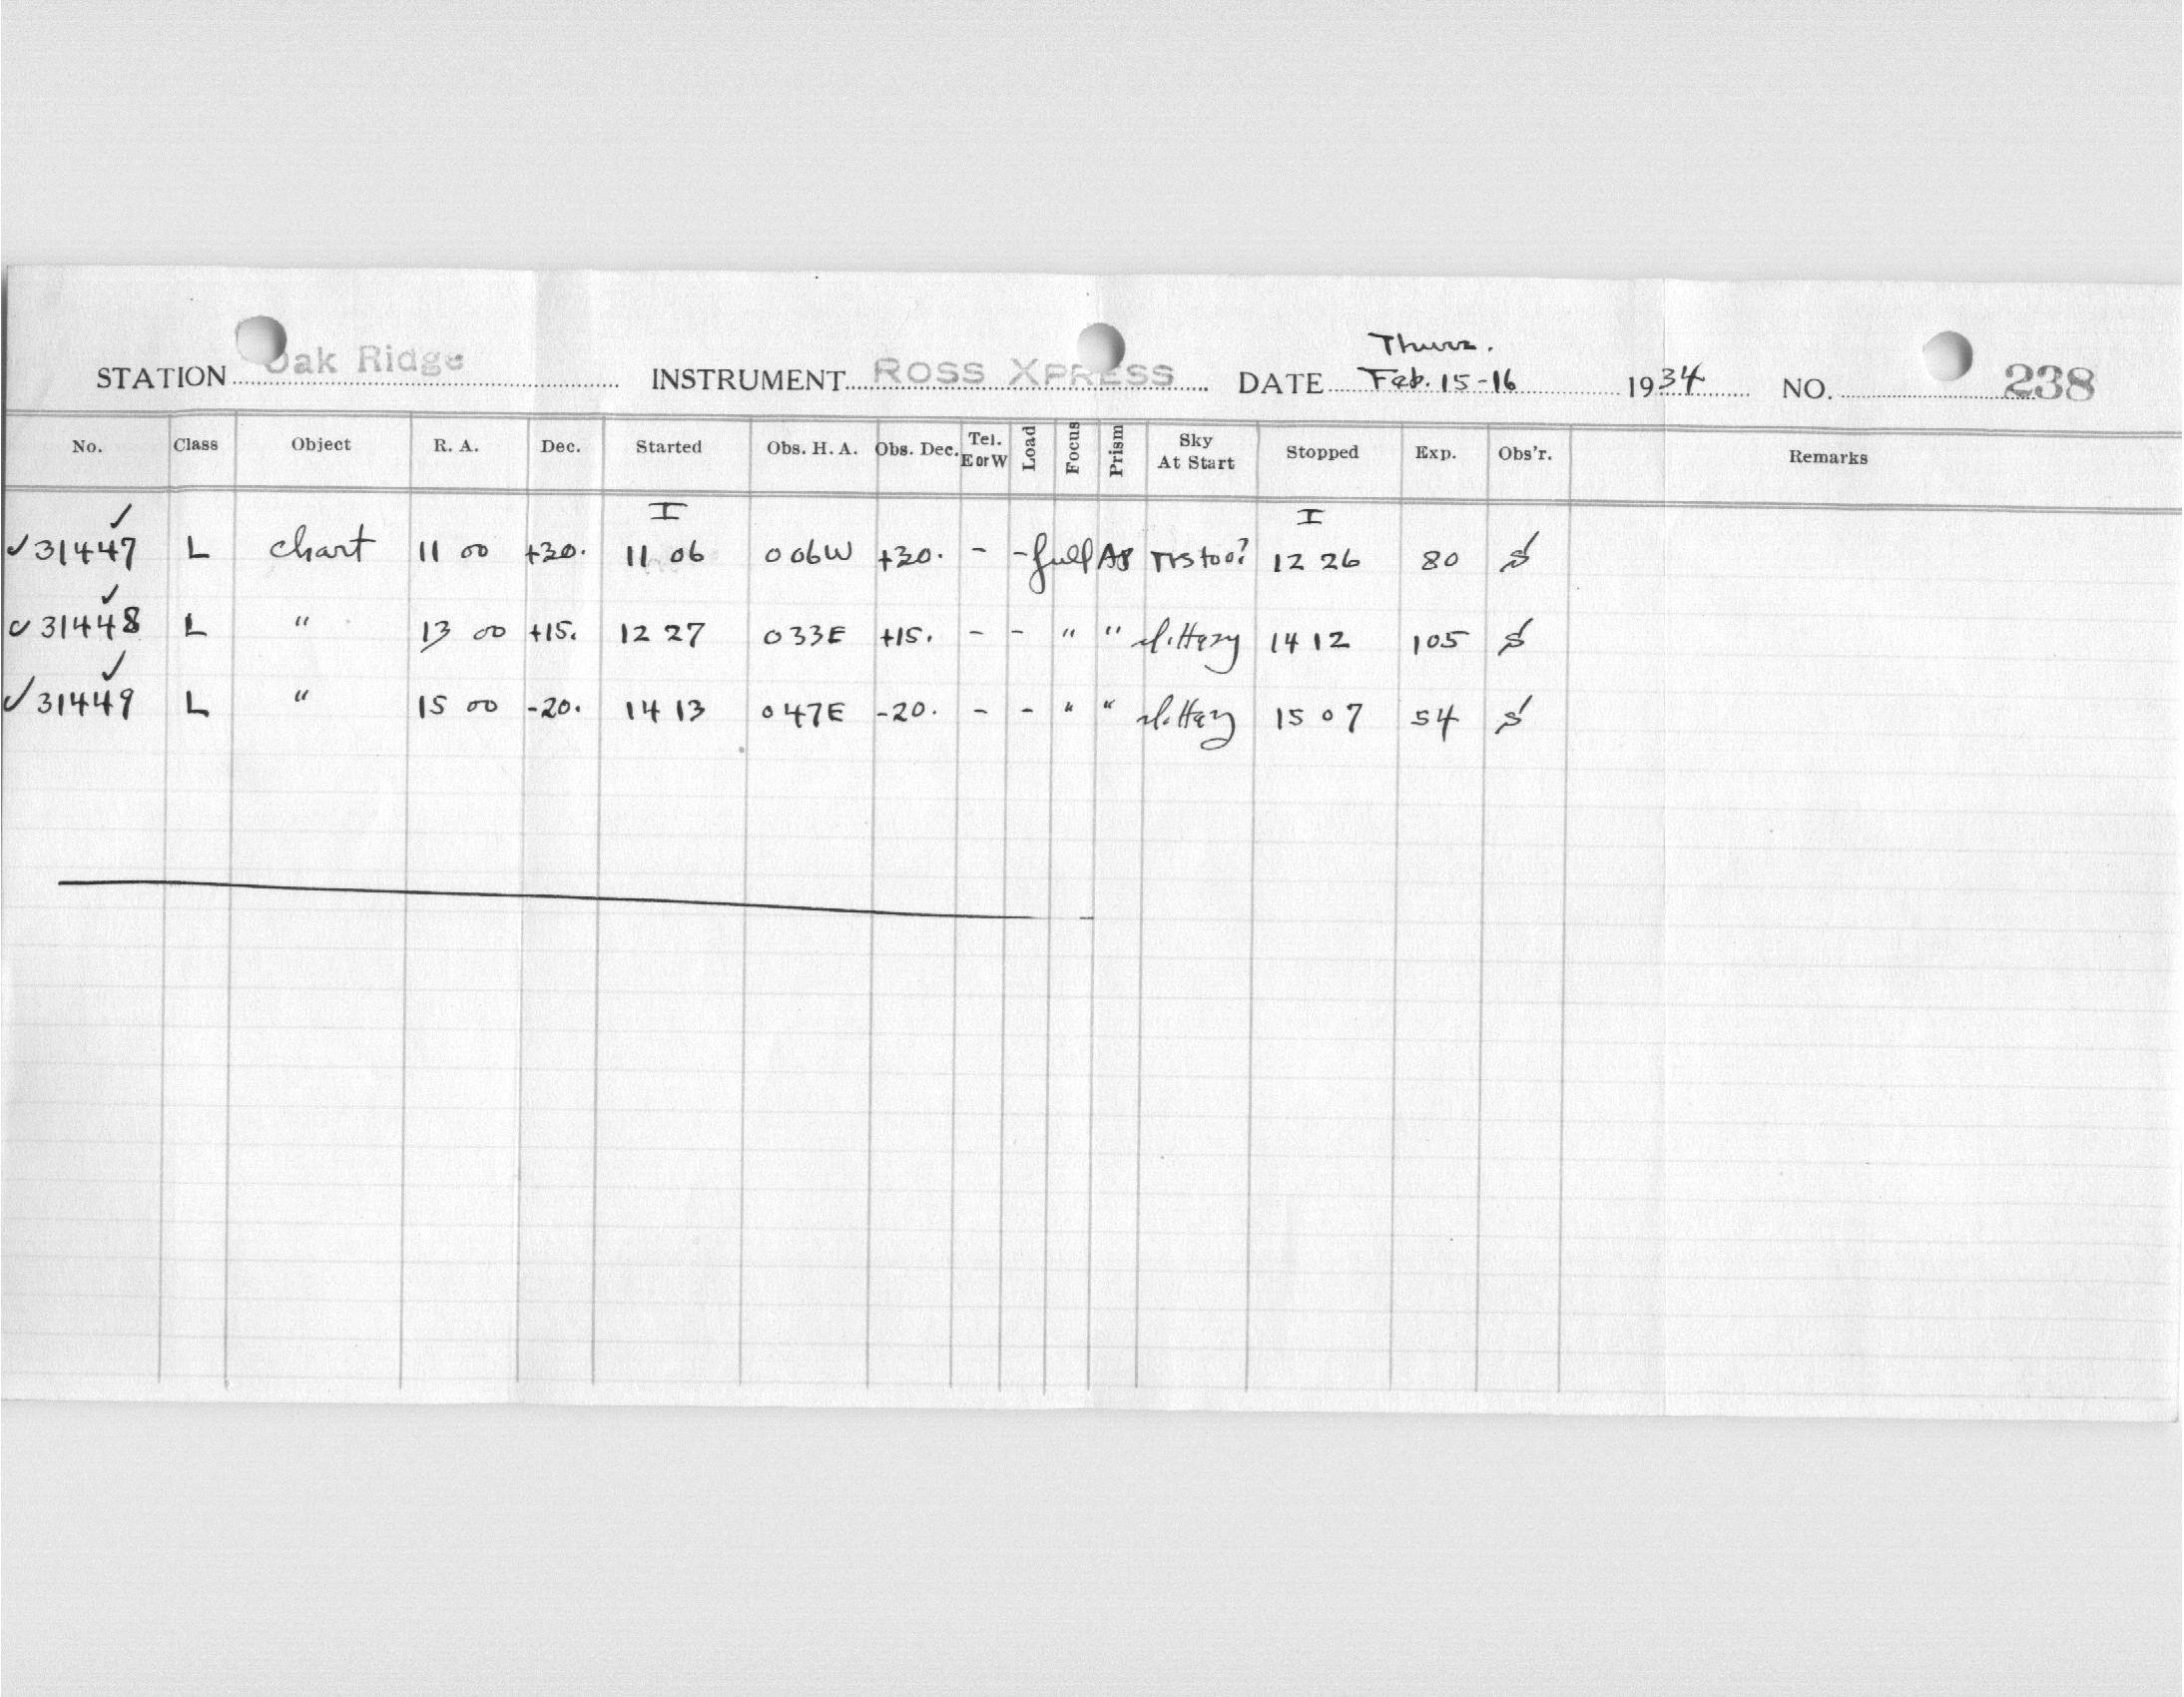 Thurs.
STATION Oak Ridge INSTRUMENT ROSS XPRESS DATE Feb. 15-16 1934 NO. 238
No. Class Object R. A. Dec. Started Obs. H. A. Obs. Dec. Tel. E or W Load Focus Prism Sky At Start Stopped Exp. Obs'r. Remarks
I I
✓ 31447 ✓ L chart 11 00 +30. 11 06 0 06W +30. - - full 12 26 80
✓ 31448 ✓ L " 13 00 +15. 12 27 0 33E +15. - - " " sl. Hazy 14 12 105
✓ 31449 ✓ L " 15 00 -20. 14 13 0 47E -20. - - " " sl. Hazy 15 07 54